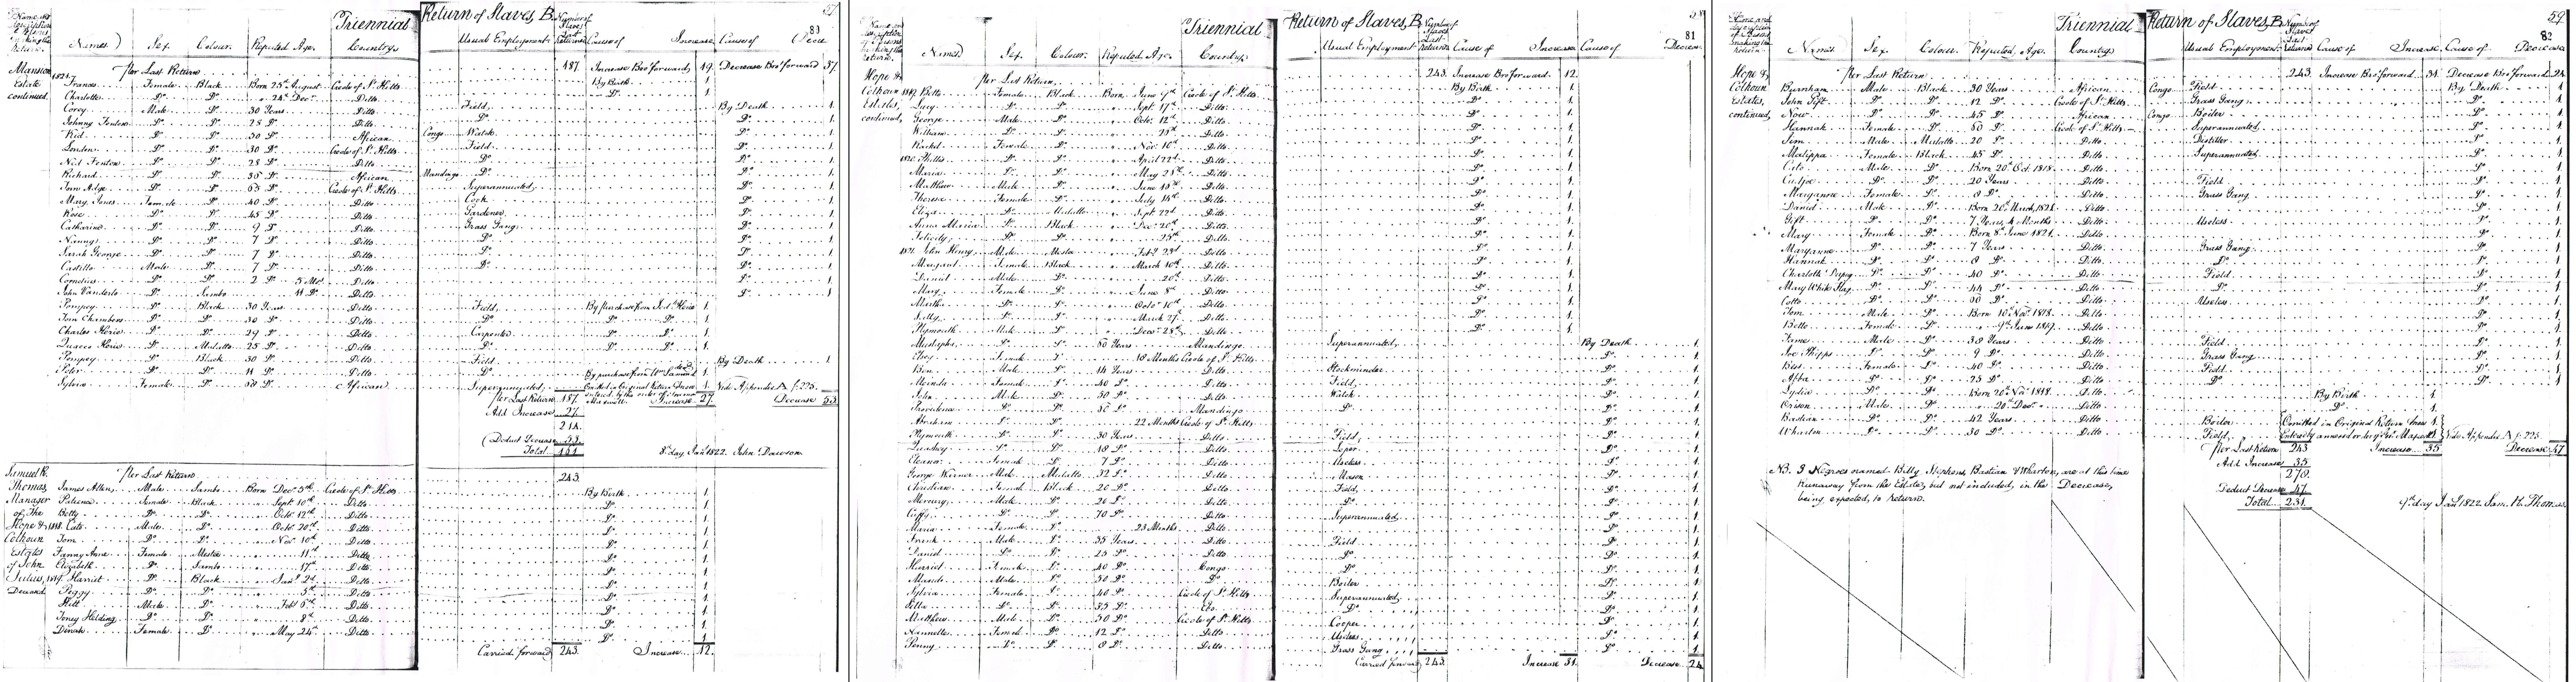 Triennial Return of Slaves, B.
Names Sex. Colour. Reputed Age. Country. Usual Employment. Cause of Increase Cause of Decre
Mansion Estate continued.
Per Last Return 187 Increase Bro't forward, 19. Decrease Bro't forward 37
Frances Female Black Born 25th August Creole of St. Kitts By Birth 1
Charlotte Do. Do. 24th Decr. Ditto Do. 1
Corey Male Do. 30 Years Ditto Field By Death 1
Johnny Fenton Do. Do. 28 Do. Ditto Do. Do. 1
Kid Do. Do. 50 Do. African Congo Watch Do. 1
London Do. Do. 30 Do. Creole of St. Kitts Field Do. 1
Ned Fenton Do. Do. 28 Do. Ditto Do. Do. 1
Richard Do. Do. 36 Do. African Mandingo Do. Do. 1
Tom Adge Do. Do. 65 Do. Creole of St. Kitts Superannuated Do. 1
Mary Jones Female Do. 40 Do. Ditto Cook Do. 1
Rose Do. Do. 45 Do. Ditto Gardener Do. 1
Catharine Do. Do. 9 Do. Ditto Grass Gang Do. 1
Nanny Do. Do. 7 Do. Ditto Do. Do. 1
Sarah George Do. Do. 7 Do. Ditto Do. Do. 1
Castillo Male Do. 7 Do. Ditto Do. Do. 1
Cornelius Do. Do. 2 Do. 5 Mo. Ditto Do. 1
John Vanderlo Do. Sambo 11 Do. Ditto Do. 1
Pompey Do. Black 30 Years Ditto Field By Purchase from 1
Tom Chambers Do. Do. 30 Do. Ditto Do. Do. Do. 1
Charles Herie Do. Do. 29 Do. Ditto Carpenter Do. Do. 1
Quacco Herie Do. Mulatto 25 Do. Ditto Do. Do. Do. 1
Pompey Do. Black 30 Do. Ditto Field By Death 1
Peter Do. Do. 11 Do. Ditto Do. By purchase from Wm. 1
Sylvia Female Do. 58 Do. African Superannuated Omitted in Original Return 1 Vide Appendix A f. 225.
Per Last Return 187 Increase 27 Decrease 53
Add Increase 27
214
Deduct Decrease 53
Total 161
8th day Jany 1822. John Dawson
Samuel H. Thomas, Manager of The Hope & Colhoun Estates of John Julius, Deceased
Per Last Return 243
James Allen Male Sambo Born Decr. 5th Creole of St. Kitts By Birth 1
Patience Female Black Sept 10th Ditto Do. 1
Betty Do. Do. Octr 12th Ditto Do. 1
1818. Cato Male Do. Octr 20th Ditto Do. 1
Tom Do. Do. Novr. 10th Ditto Do. 1
Fanny Anne Female Mestee 11th Ditto Do. 1
Elizabeth Do. Sambo 17th Ditto Do. 1
1819. Harriet Do. Black Jany 2d Ditto Do. 1
Peggy Do. Do. 5th Ditto Do. 1
Male Do. Feby 6th Ditto Do. 1
Toney Helding Do. Do. 8th Ditto Do. 1
Dinah Female Do. May 24th Ditto Do. 1
Carried forward 243 Increase 12.
Triennial Return of Slaves, B. 81
Names Sex. Colour. Reputed Age. Country. Usual Employment. Cause of Increase Cause of Decrease
Hope & Colhoun Estates, continued,
Per Last Return 243. Increase Bro't forward 12.
1819. Betty Female Black Born June 9th Creole of St. Kitts By Birth 1
Lucy Do. Do. Sept. 17th Ditto Do. 1
George Male Do. Octr. 12th Ditto Do. 1
William Do. Do. 15th Ditto Do. 1
Rachel Female Do. Novr. 10th Ditto Do. 1
1820. Phillis Do. Do. April 22d Ditto Do. 1
Maria Do. Do. May 25th Ditto Do. 1
Matthew Male Do. June 15th Ditto Do. 1
Theresa Female Do. July 14th Ditto Do. 1
Eliza Do. Mulatto Sept 22d Ditto Do. 1
Anna Maria Do. Black Decr 20th Ditto Do. 1
Felicity Do. Do. 25th Ditto Do. 1
1821. John Henry Male Mestee Feby 23d Ditto Do. 1
Margaret Female Black March 10th Ditto Do. 1
Daniel Male Do. 20th Ditto Do. 1
Mary Female Do. June 8th Ditto Do. 1
Martha Do. Do. Octr 10th Ditto Do. 1
Sally Do. Do. March 27th Ditto Do. 1
Plymouth Male Do. Decr 28th Ditto Do. 1
Do. Do. 80 Years Mandingo Superannuated By Death 1
Phoey Female Do. 18 Months Creole of St. Kitts Do. 1
Ben Male Do. 14 Years Ditto Stockminder Do. 1
Merinda Female Do. 40 Do. Ditto Field Do. 1
John Male Do. 50 Do. Ditto Watch Do. 1
Providence Do. Do. 50 Do. Mandingo Do. Do. 1
Abraham Do. Do. 22 Months Creole of St. Kitts Do. 1
Plymouth Do. Do. 30 Years Ditto Field Do. 1
Quashey Do. Do. 18 Do. Ditto Leper Do. 1
Eleanor Female Do. 7 Do. Ditto Useless Do. 1
George Warner Male Mulatto 32 Do. Ditto Mason Do. 1
Christian Female Black 26 Do. Ditto Field Do. 1
Mercury Male Do. 26 Do. Ditto Do. Do. 1
Cuffy Do. Do. 70 Do. Ditto Superannuated Do. 1
Maria Female Do. 23 Months Ditto Do. 1
Frank Male Do. 35 Years Ditto Field Do. 1
Daniel Do. Do. 25 Do. Ditto Do. Do. 1
Harriet Female Do. 40 Do. Congo Do. Do. 1
Male Do. 50 Do. Do. Boiler Do. 1
Sylvia Female Do. 40 Do. Creole of St. Kitts Superannuated Do. 1
Do. Do. 55 Do. Ebo Do. Do. 1
Matthew Male Do. 50 Do. Creole of St. Kitts Cooper Do. 1
Female Do. 12 Do. Ditto Useless Do. 1
Penny Do. Do. 8 Do. Ditto Grass Gang Do. 1
Carried forward 243. Increase 31. Decrease 24
Triennial Return of Slaves, B. 59 82
Names Sex. Colour. Reputed Age. Country Usual Employment Cause of Increase Cause of Decrease
Hope & Colhoun Estates, continued,
Per Last Return 243. Increase Bro't forward 31. Decrease Bro't forward 24
Burnham Male Black 30 Years African Congo Field By Death 1
John Gift Do. Do. 12 Do. Creole of St. Kitts Grass Gang Do. 1
Now Do. Do. 45 Do. African Congo Boiler Do. 1
Hannah Female Do. 60 Do. Creole of St. Kitts Superannuated Do. 1
Sam Male Mulatto 20 Do. Ditto Distiller Do. 1
Malippa Female Black 45 Do. Ditto Superannuated Do. 1
Cato Male Do. Born 20th Oct. 1818 Ditto Do. 1
Cudjoe Do. Do. 20 Years Ditto Field Do. 1
Maryanne Female Do. 8 Do. Ditto Grass Gang Do. 1
Daniel Male Do. Born 20th March 1821 Ditto Do. 1
Gift Do. Do. 7 Years, 4 Months Ditto Useless Do. 1
Mary Female Do. Born 8th June 1821 Ditto Do. 1
Maryanne Do. Do. 7 Years Ditto Grass Gang Do. 1
Hannah Do. Do. 8 Do. Ditto Do. Do. 1
Charlotte Do. Do. 40 Do. Ditto Field Do. 1
Mary White Flag Do. Do. 44 Do. Ditto Do. Do. 1
Cotto Do. Do. 30 Do. Ditto Useless Do. 1
Tom Male Do. Born 10th Novr. 1818 Ditto Do. 1
Betto Female Do. 9th June 1819 Ditto Do. 1
Male Do. 38 Years Ditto Field Do. 1
Joe Phipps Do. Do. 9 Do. Ditto Grass Gang Do. 1
Bess Female Do. 40 Do. Ditto Field Do. 1
Abba Do. Do. 25 Do. Ditto Do. Do. 1
Lydia Do. Do. Born 26th Novr 1818 Ditto By Birth 1
Orison Male Do. 20th Decr Ditto Do. 1
Bastian Do. Do. 42 Years Ditto Boiler Omitted in Original Return 1
Wharton Do. Do. 30 Do. Ditto Field 1 Vide Appendix A f. 225
Per Last Return 243 Increase 35 Decrease 47
Add Increase 35
278
Deduct Decrease 47
Total 231
N.B. 3 Negroes named Billy Stephens, Bastian & Wharton, are at this time
runaway from the Estate, but not included, in the Decrease,
being expected, to return.
9th day Jany 1822. Sam. H. Thomas